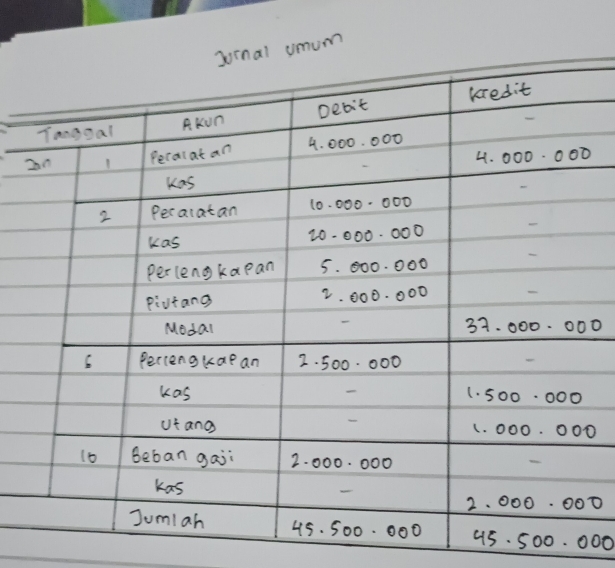 Jurnal Umum
Tanggal Akun Debit Kredit
Jan 1 Peralatan 4.000.000 -
Kas - 4.000.000
2 Peralatan 10.000.000 -
Kas 20.000.000 -
Perlengkapan 5.000.000 -
Piutang 2.000.000 -
Modal - 37.000.000
6 Perlengkapan 2.500.000 -
Kas - 1.500.000
Utang - 1.000.000
10 Beban gaji 2.000.000 -
Kas - 2.000.000
Jumlah 45.500.000 45.500.000